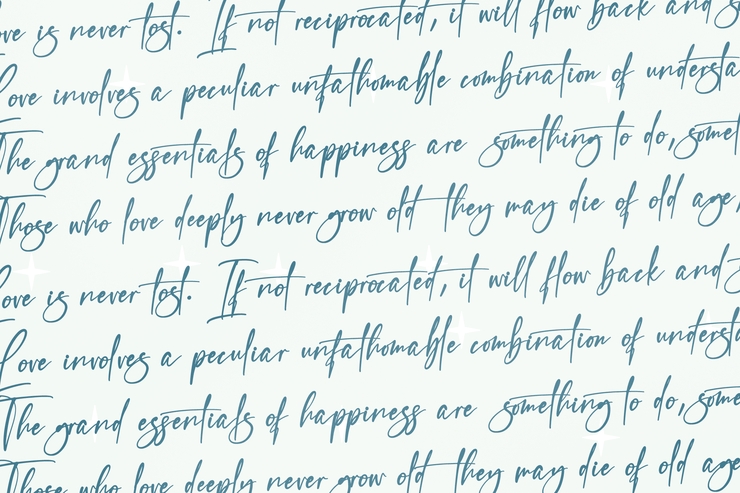 ove is never lost. If not reciprocated, it will flow back and s
Love involves a peculiar unfathomable combination of understa
The grand essentials of happiness are something to do, somet
Those who love deeply never grow old they may die of old age,
ove is never lost. If not reciprocated, it will flow back and s
Love involves a peculiar unfathomable combination of understa
The grand essentials of happiness are something to do, some
Those who love deeply never grow old they may die of old age